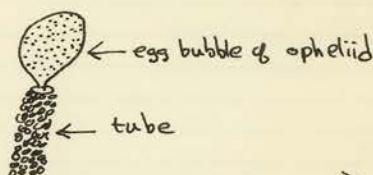 egg bubble of opheliid
tube